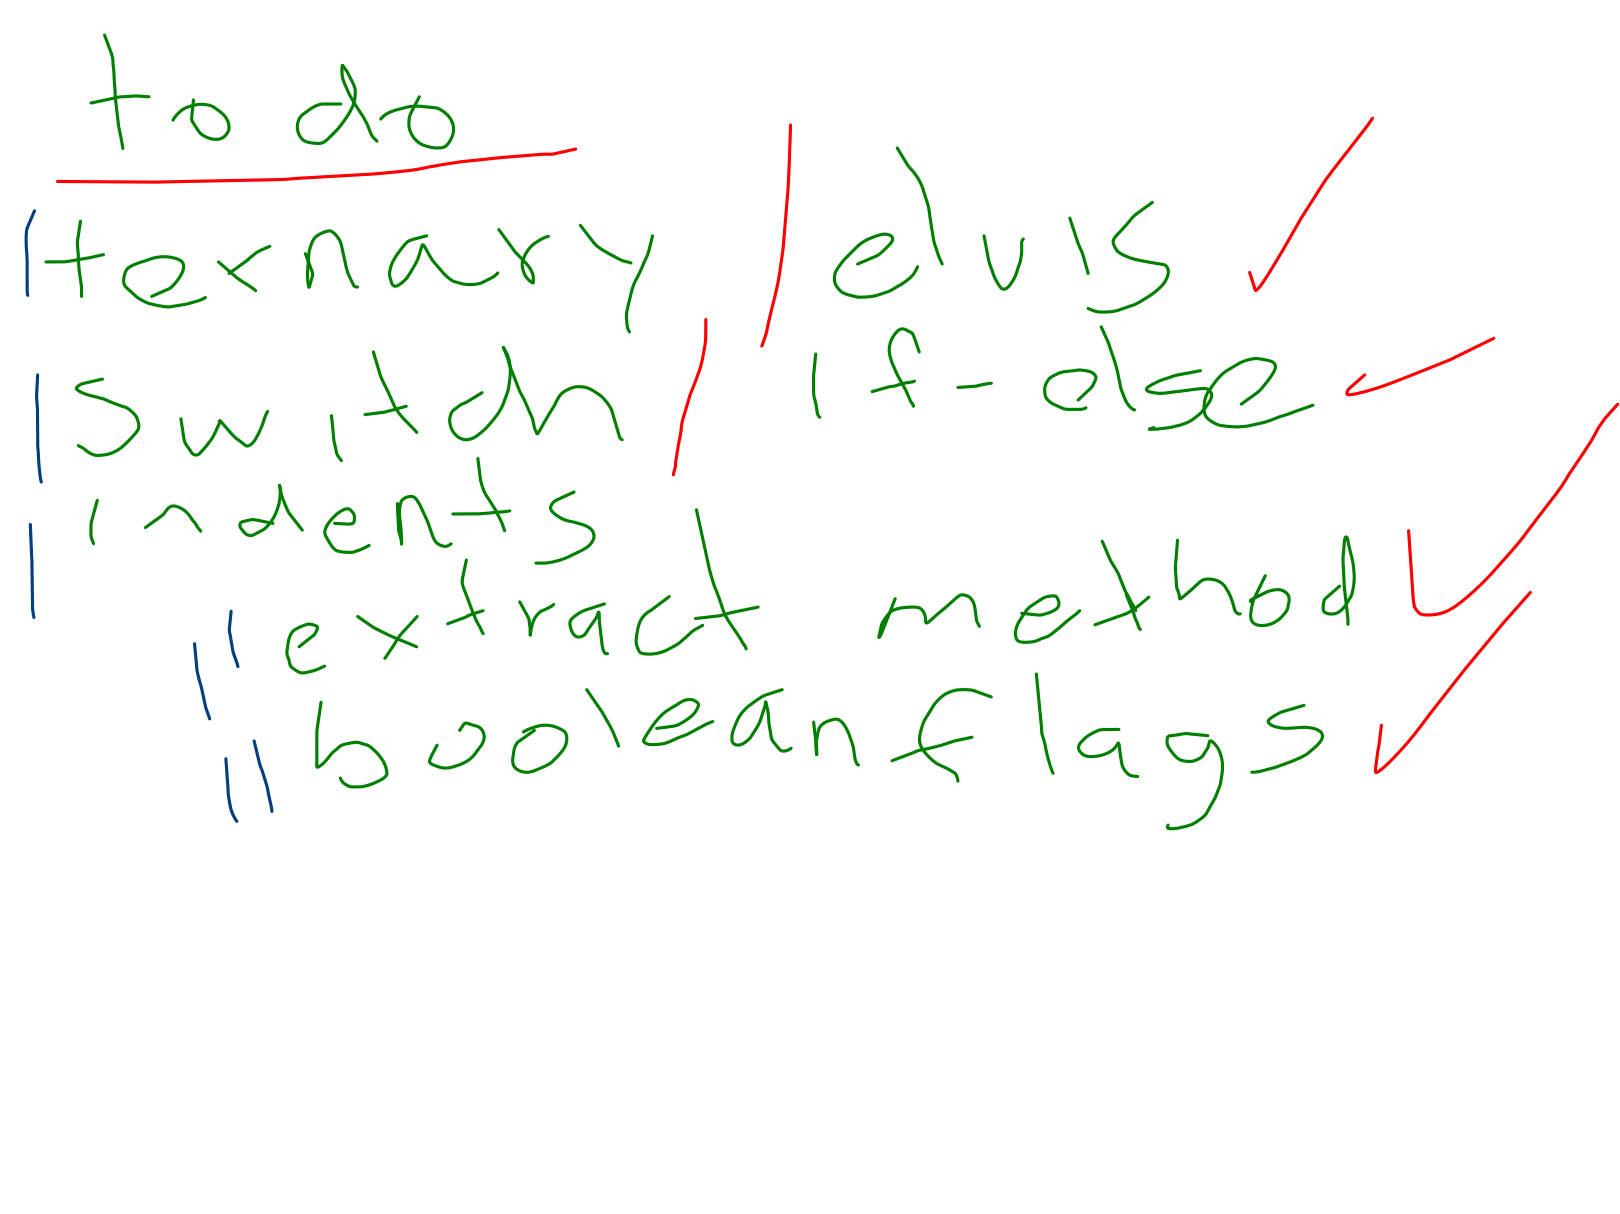 to do
ternary / elvis
switch / if-else
indents
extract method
boolean flags